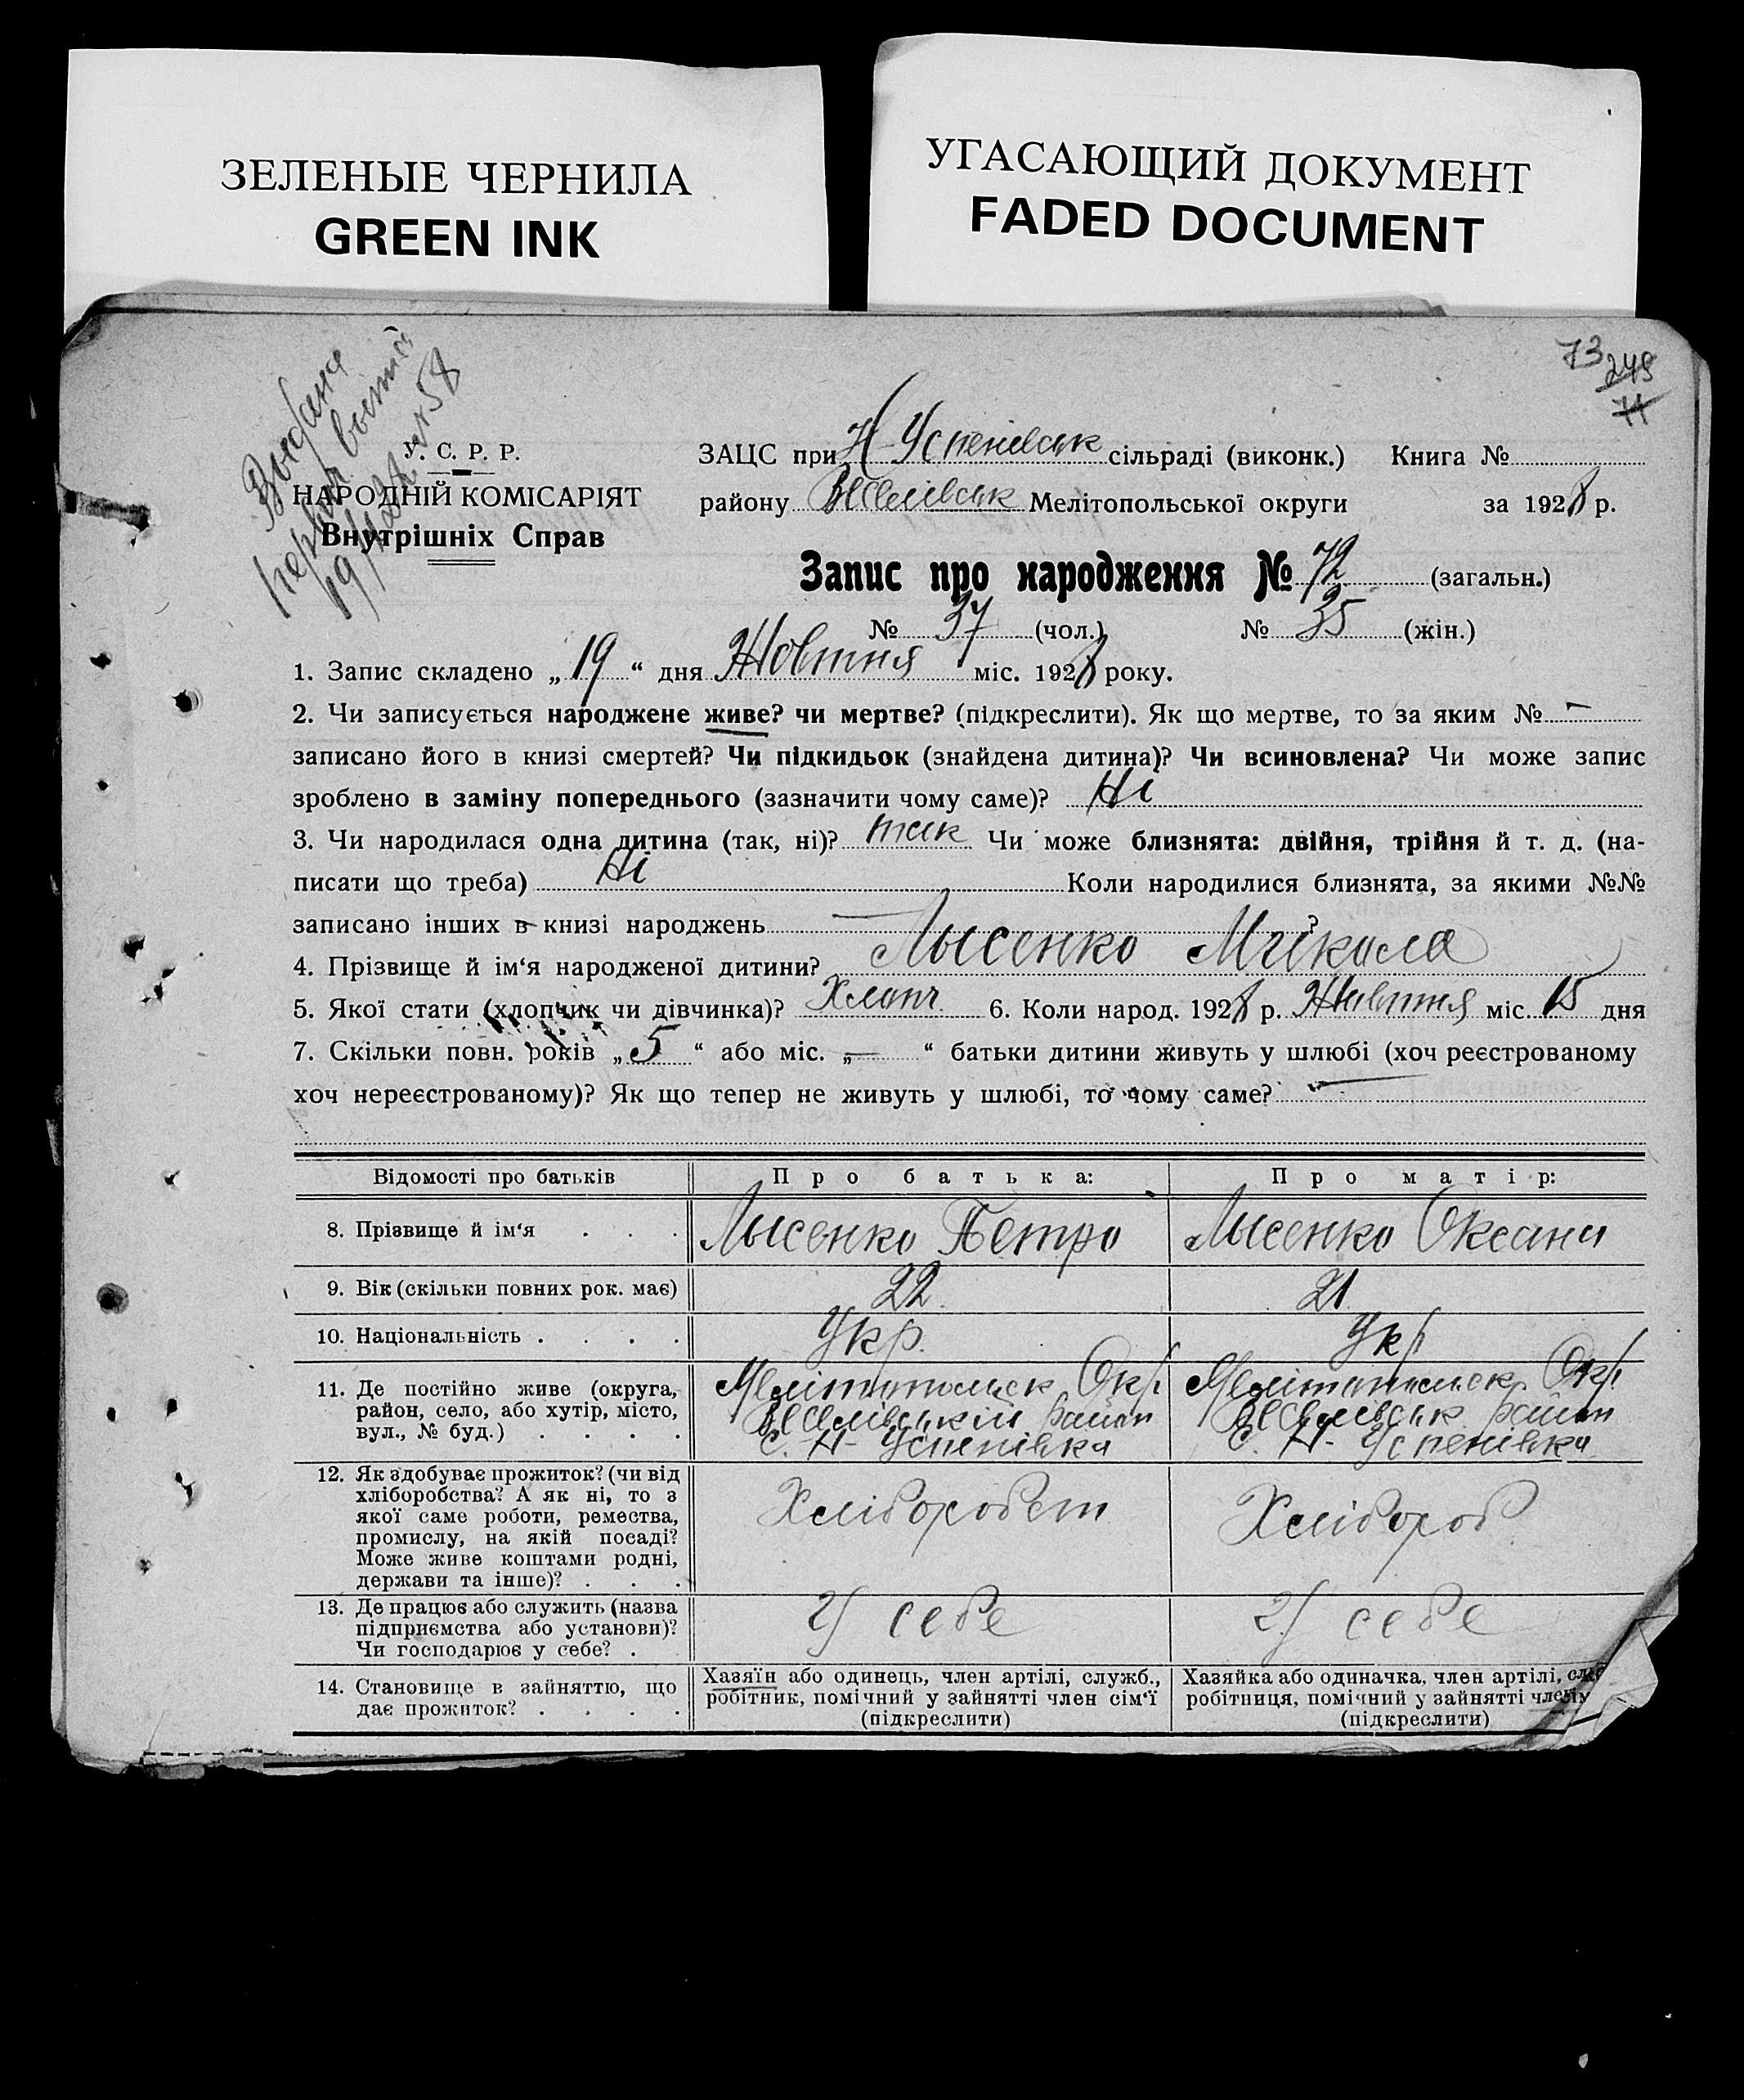 ЗЕЛЕНЫЕ ЧЕРНИЛА
GREEN INK
УГАСАЮЩИЙ ДОКУМЕНТ
FADED DOCUMENT
73
249
71
Выдана
19/ 58
У. С. Р. Р.
НАРОДНІЙ КОМІСАРІЯТ
Внутрішніх Справ
ЗАЦС при Н Успенівськ сільраді (виконк.) Книга №
району Мелітопольської округи за 1928 р.
Запис про народження № 72 (загальн.)
№ 37 (чол.) № 35 (жін.)
1. Запис складено „19“ дня Жовтня міс. 1928 року.
2. Чи записується народжене живе? чи мертве? (підкреслити). Як що мертве, то за яким № —
записано його в книзі смертей? Чи підкидьок (знайдена дитина)? Чи всиновлена? Чи може запис
зроблено в заміну попереднього (зазначити чому саме)? Ні
3. Чи народилася одна дитина (так, ні)? так Чи може близнята: двійня, трійня й т. д. (на-
писати що треба) Ні Коли народилися близнята, за якими №№
записано інших в книзі народжень — ?
4. Прізвище й ім‘я народженої дитини? Лысенко Микола
5. Якої стати (хлопчик чи дівчинка)? Хлопч. 6. Коли народ. 1928 р. Жовтня міс. 15 дня
7. Скільки повн. років „5“ або міс. „—“ батьки дитини живуть у шлюбі (хоч реєстрованому
хоч нереєстрованому)? Як що тепер не живуть у шлюбі, то чому саме? —
Відомості про батьків Про батька: Про матір:
8. Прізвище й ім‘я . . . Лысенко Петро Лысенко Оксана
9. Вік (скільки повних рок. має) 22 21
10. Національність . . . . Укр. Укр
11. Де постійно живе (округа, Мелітопольск Окр Мелітопольск Окр.
район, село, або хутір, місто, район район
вул., № буд.) . . . . с. Н-Успенівка с. Н-Успенівка
12. Як здобуває прожиток? (чи від
хліборобства? А як ні, то з
якої саме роботи, ремества, Хлібороб Хлібороб
промислу, на якій посаді?
Може живе коштами родні,
держави та інше)? . . .
13. Де працює або служить (назва У себе У себе
підприємства або установи)?
Чи господарює у себе? .
14. Становище в зайняттю, що
дає прожиток? . . . .
Хазяїн або одинець, член артілі, служб.,
робітник, помічний у зайнятті член сім‘ї
(підкреслити)
Хазяйка або одиначка, член артілі,
робітниця, помічний у зайнятті
(підкреслити)